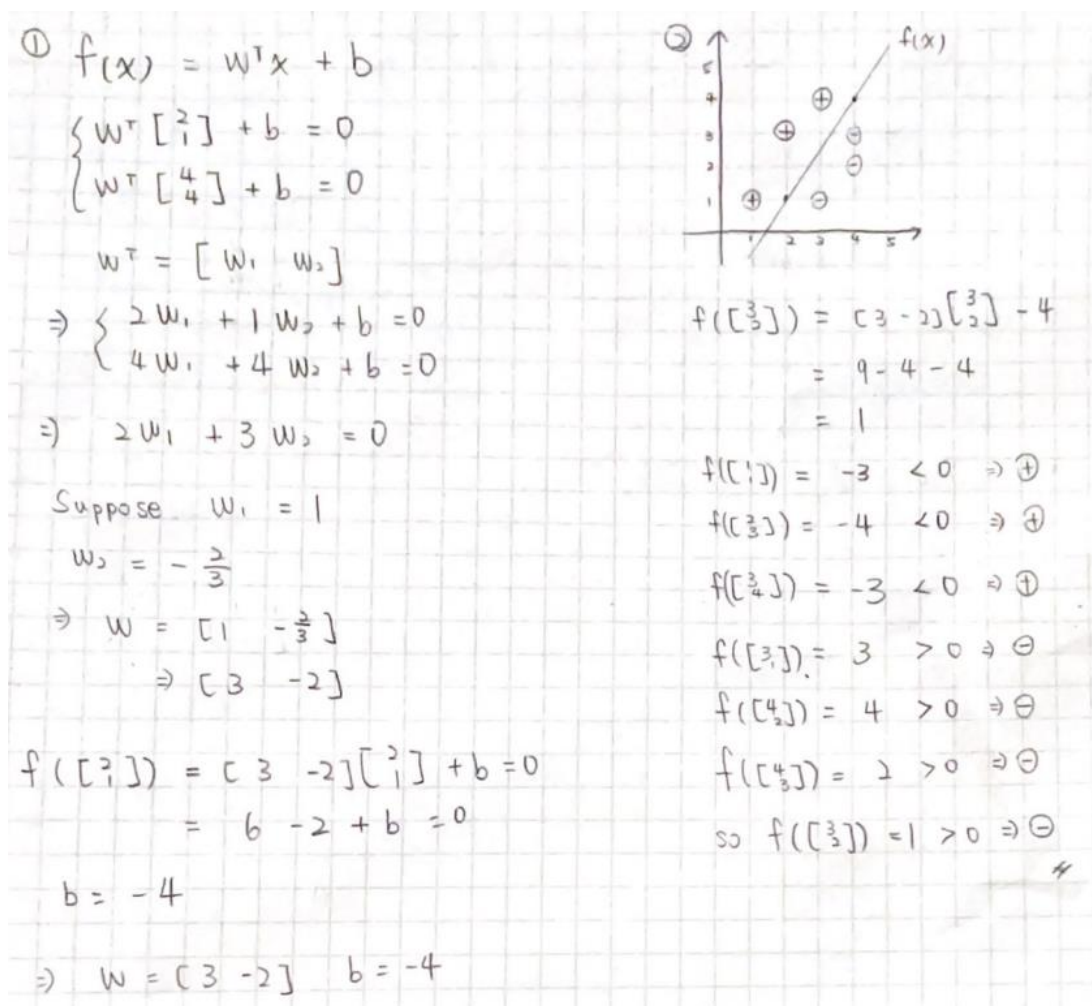 ① f(x) = wᵀx + b
{ wᵀ [2 1] + b = 0
wᵀ [4 4] + b = 0
wᵀ = [ w₁ w₂ ]
⇒ { 2w₁ + 1w₂ + b = 0
4w₁ + 4w₂ + b = 0
⇒ 2w₁ + 3w₂ = 0
Suppose w₁ = 1
w₂ = - 2/3
⇒ w = [1 -2/3]
⇒ [3 -2]
f([2 1]) = [3 -2][2 1] + b = 0
= 6 - 2 + b = 0
b = -4
⇒ w = [3 -2] b = -4
② f(x)
5
4 ⊕
3 ⊕ ⊖
2 ⊖
1 ⊕ ⊖
1 2 3 4 5
f([3 2]) = [3 -2][3 2] - 4
= 9 - 4 - 4
= 1
f([1 1]) = -3 < 0 ⇒ ⊕
f([2 3]) = -4 < 0 ⇒ ⊕
f([3 4]) = -3 < 0 ⇒ ⊕
f([3 1]) = 3 > 0 ⇒ ⊖
f([4 2]) = 4 > 0 ⇒ ⊖
f([4 3]) = 2 > 0 ⇒ ⊖
so f([3 2]) = 1 > 0 ⇒ ⊖